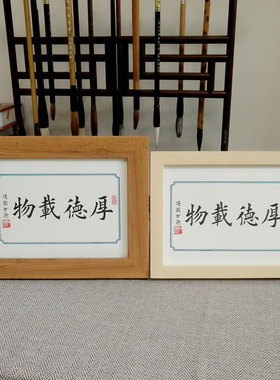 厚德載物
厚德載物